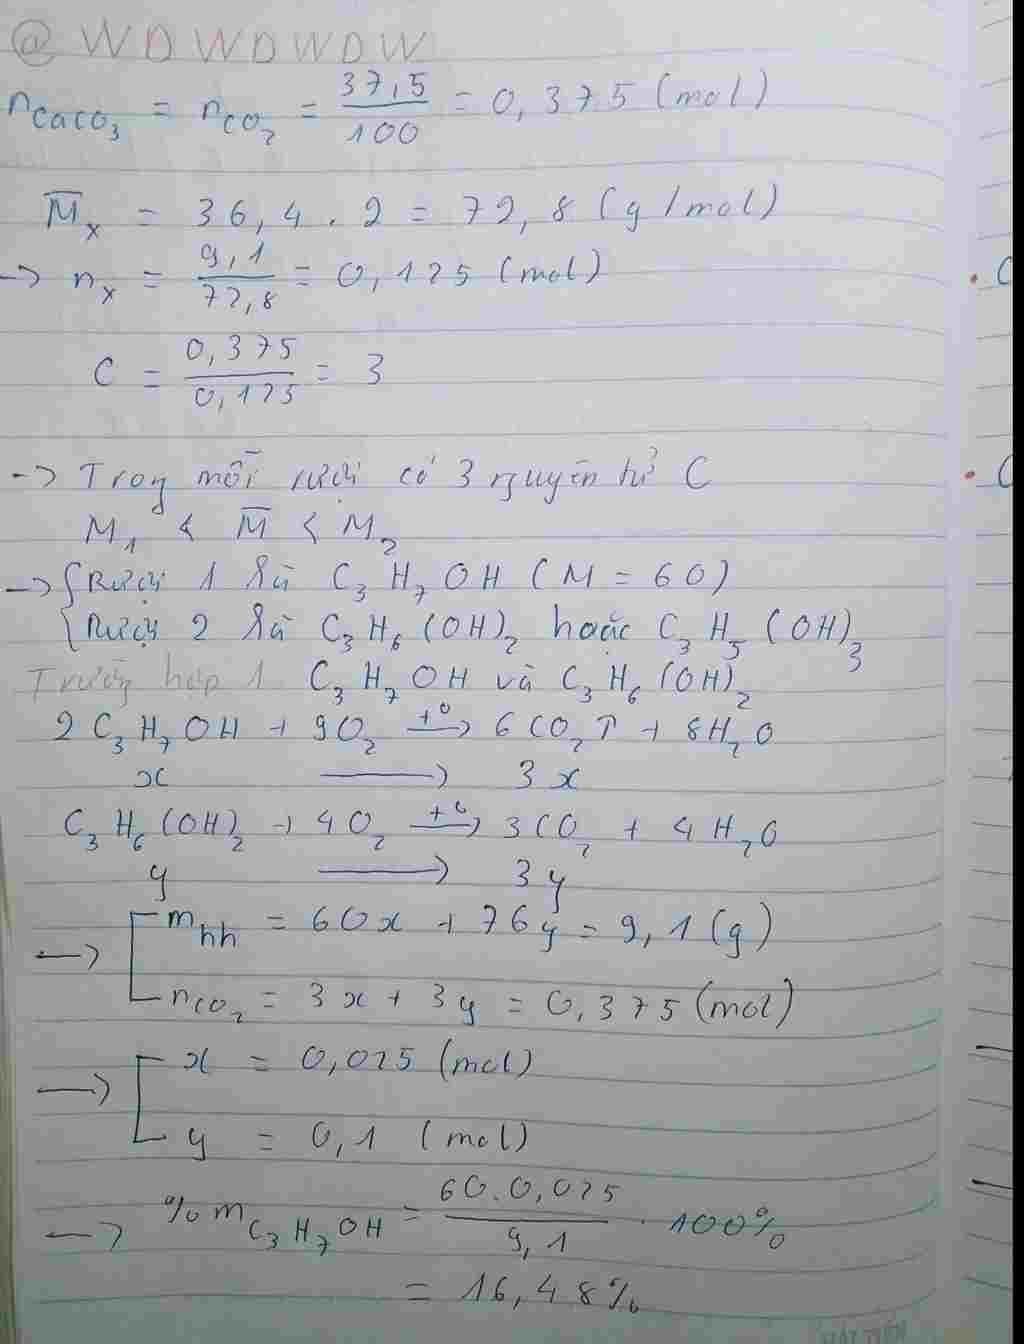 @ WDWDWDW
n_CaCO₃ = n_CO₂ = 37,5/100 = 0,375 (mol)
M̅_x = 36,4 . 2 = 72,8 (g/mol)
-> n_x = 9,1/72,8 = 0,125 (mol)
C = 0,375/0,125 = 3
-> Trong mỗi rượu có 3 nguyên tử C
M₁ < M̅ < M₂
-> { Rượu 1 là C₃H₇OH (M = 60)
{ Rượu 2 là C₃H₆(OH)₂ hoặc C₃H₅(OH)₃
Trường hợp 1 C₃H₇OH và C₃H₆(OH)₂
2C₃H₇OH + 9O₂ –t°→ 6CO₂↑ + 8H₂O
x ⟶ 3x
C₃H₆(OH)₂ + 4O₂ –t°→ 3CO₂ + 4H₂O
y ⟶ 3y
⟶ [ m_hh = 60x + 76y = 9,1 (g)
[ n_CO₂ = 3x + 3y = 0,375 (mol)
⟶ [ x = 0,025 (mol)
[ y = 0,1 (mol)
⟶ %m_C₃H₇OH = 60.0,025/9,1 . 100%
= 16,48%